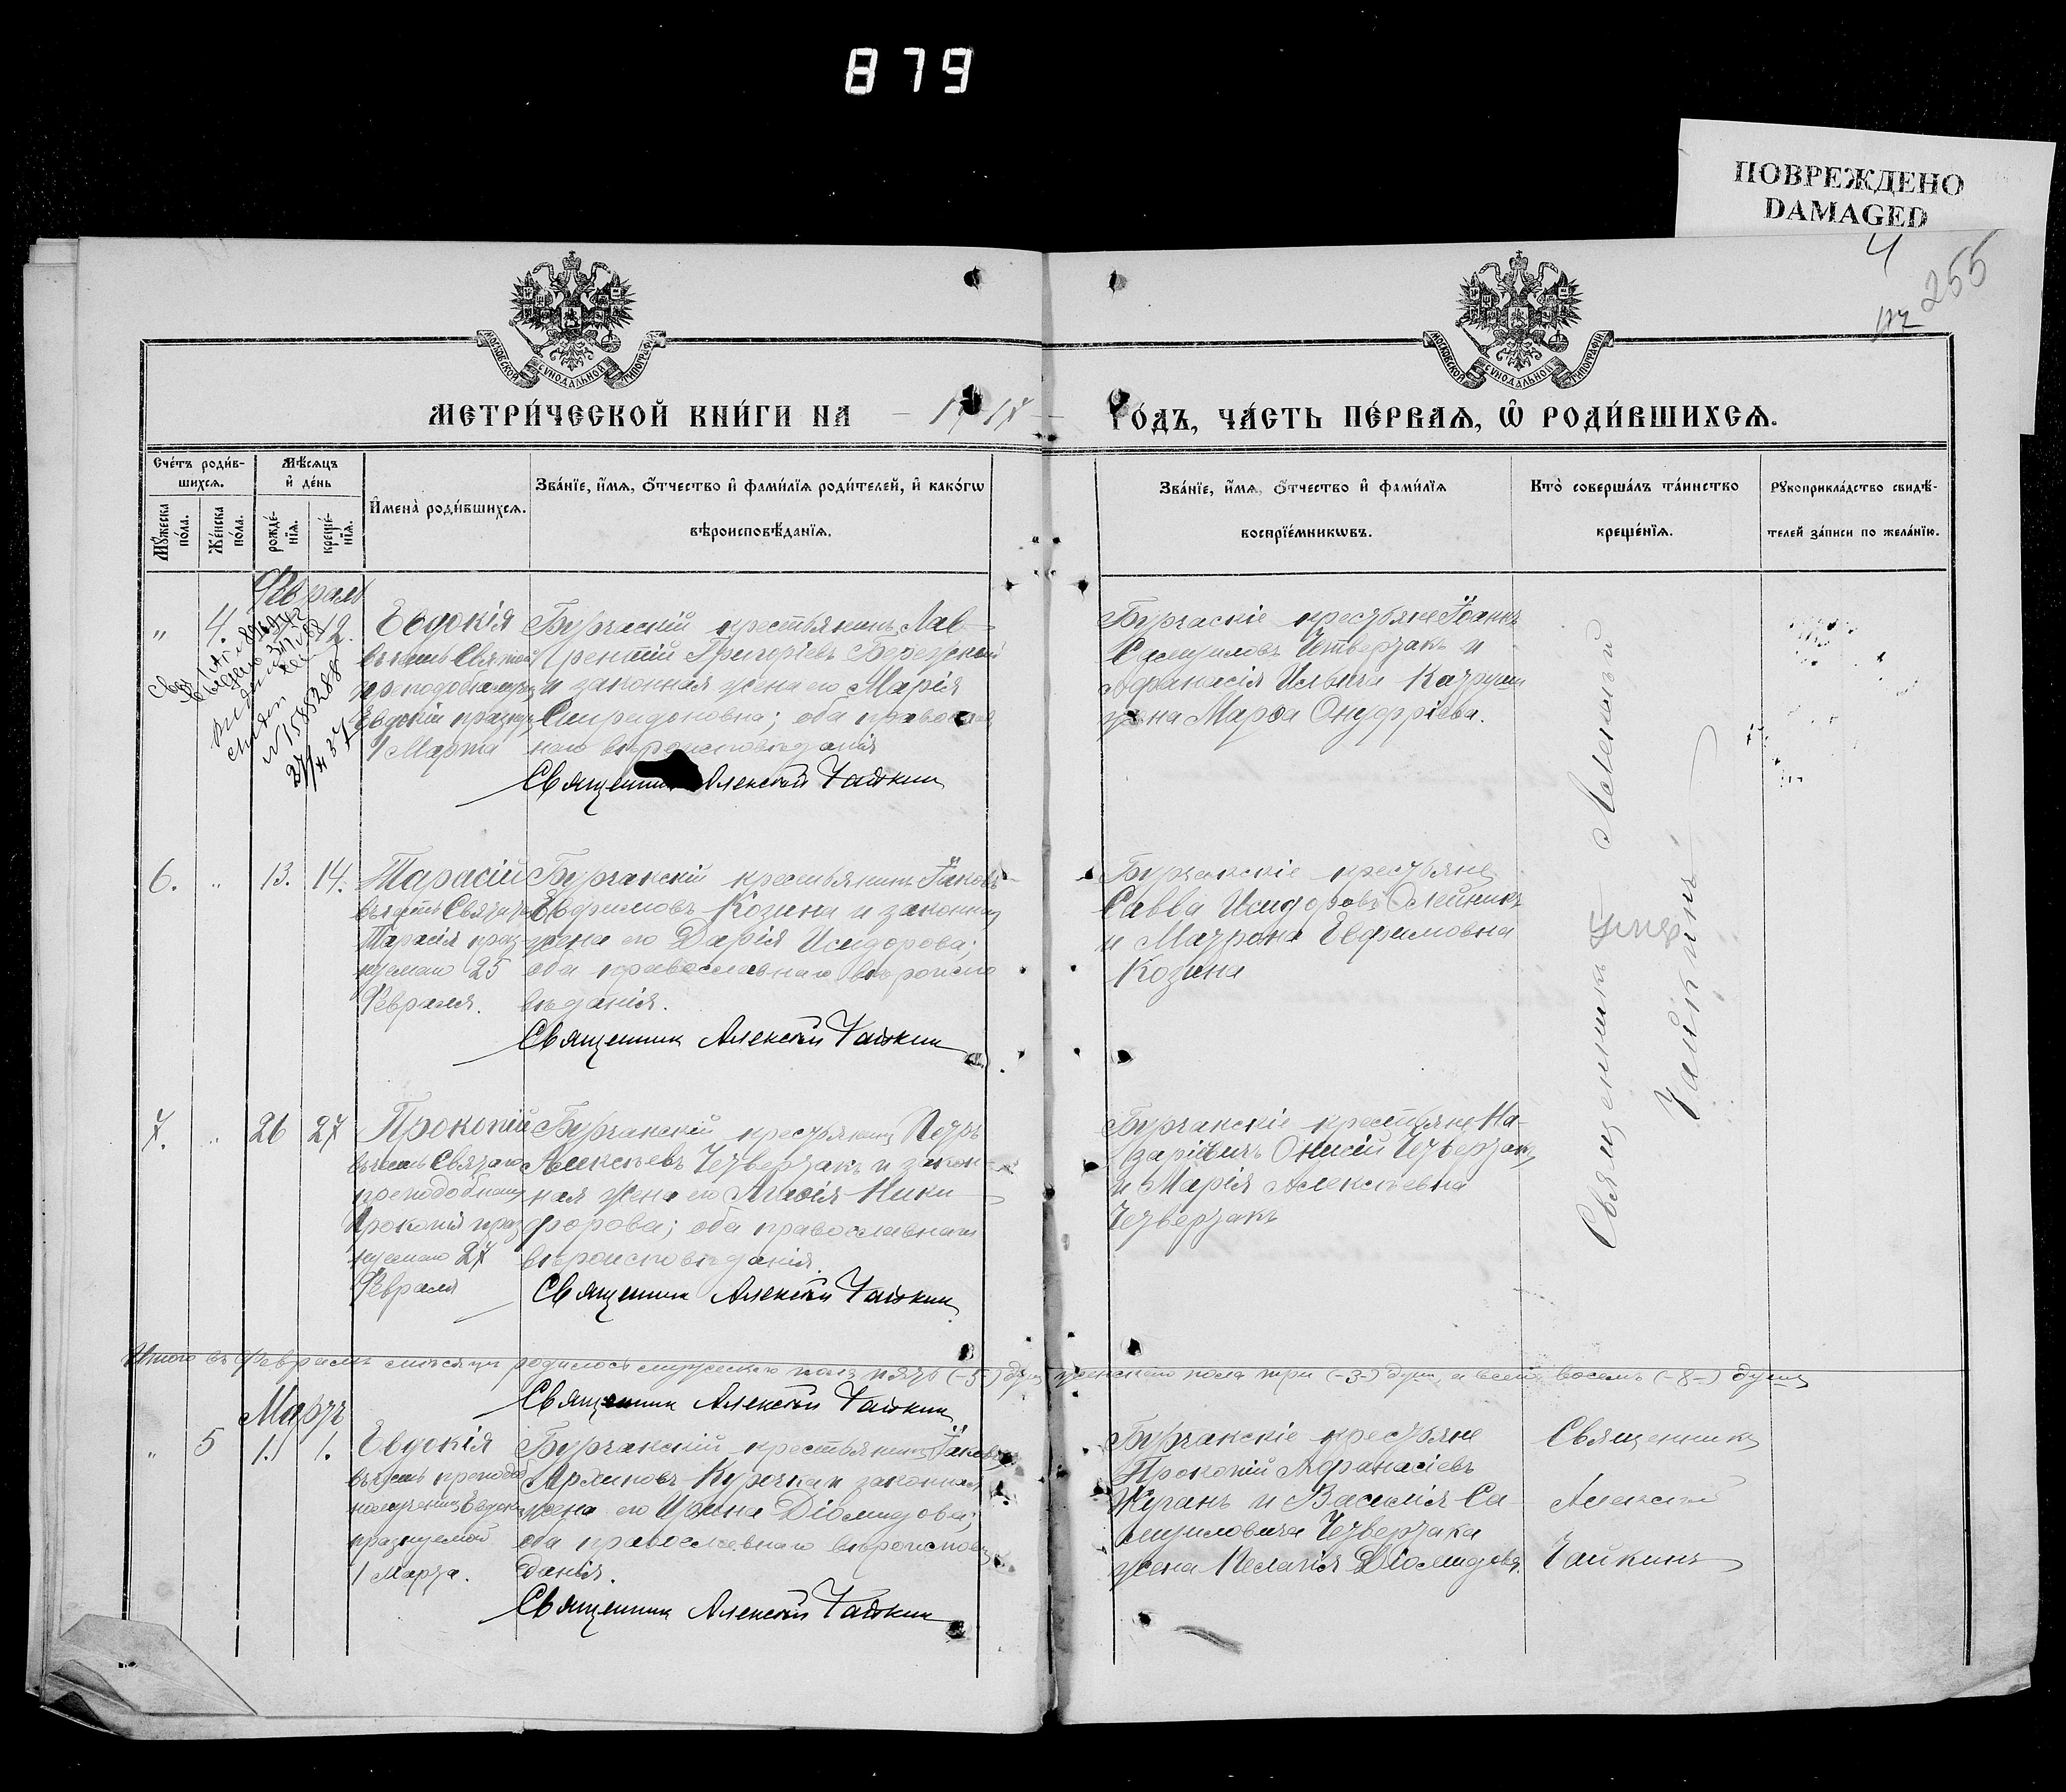 879
ПОВРЕЖДЕНО
DAMAGED
4
255
МОСКОВСКОЙ СѴНОДАЛЬНОЙ ТИПОГРАФІИ
МОСКОВСКОЙ СѴНОДАЛЬНОЙ ТИПОГРАФІИ
МЕТРИ́ЧЕСКОЙ КНИ́ГИ НА
ГО́ДЪ, ЧА́СТЬ ПЕ́РВАѦ, Ѽ РОДИ́ВШИХСѦ.
Сче́тъ роди́в-
шихсѧ.
Мѣ́сѧцъ
и҆ де́нь
Мꙋ́жеска по́ла.
Же́нска по́ла.
рожде́-
нїѧ.
креще́-
нїѧ.
И҆мена̀ роди́вшихсѧ.
Зва́нїе, и҆́мѧ, ѻ҆́тчество и҆ фами́лїѧ роди́телей, и҆ како́гѡ
вѣроисповѣ́данїѧ.
Зва́нїе, и҆́мѧ, ѻ҆́тчество и҆ фами́лїѧ
воспрїе́мникѡвъ.
Кто̀ соверша́лъ та́инство
креще́нїѧ.
Рꙋкоприкла́дство свидѣ́-
телей за́писи по жела́нїю.
Февраль
" 4. 12.
Евдокія
въ честь Святой
Евдокіи праздн
1 Марта
Бурчаскій крестьянинъ Лав-
рентій Григоріевъ
и законная жена его Марія
Спиридоновна; оба православ
наго вѣроисповѣданія
Священникъ Алексѣй Чайкин
Бурчаскіе крестьяне Іоаннъ
Самуиловъ Четвертакъ и
Афанасія Ильича
жена Марѳа Онуфріева.
№ 1585288
Священникъ Алексѣй
Чайкинъ
умер
6. " 13. 14.
Тарасій
въ честь Святаго
Тарасія праз-
нуемаго 25
Февраля.
Бурчакскій крестьянинъ Іаковъ
Евфимовъ Козина и законная
жена его Дарія Исидорова;
оба православнаго вѣроиспо
вѣданія.
Священник Алексѣй Чайкин
Бурчакскіе крестьяне
Савва Исидоровъ Олейникъ
и Матрона Евфимовна
Козина
7. " 26 27
Прокопій
въ честь Святаго
преподобнаго
Прокопія праз
нуемаго 27
Февраля
Бурчакскій крестьянинъ Петръ
Алексѣевъ Четвертакъ и закон-
ная жена его Агафія Ники-
форова; оба православнаго
вѣроисповѣданія.
Священник Алексѣй Чайкин
Бурчакскіе крестьяне На-
заріевичъ Онисій Четвертакъ
и Марія Алексѣевна
Четвертакъ
Итого въ Февралѣ мѣсяцѣ родилось мужескаго пола пять (-5-) душъ женскаго пола три (-3-) душ, а всего восемь (-8-) душъ
Священник Алексѣй Чайкин
Мартъ
" 5 1. 1.
Евдокія
въ честь преподоб
номученицы Евдокіи
празнуемой
1 Марта.
Бурчакскій крестьянинъ Іаковъ
Курочка и законная
жена его Ирина Діомидова;
оба православнаго вѣроисповѣ
данія.
Священник Алексѣй Чайкин
Бурчакскіе крестьяне
Прокопій Афанасіевъ
Жуганъ и Василія Са-
муиловича Четвертака
жена Пелагія Діомидова.
Священникъ
Алексѣй
Чайкинъ